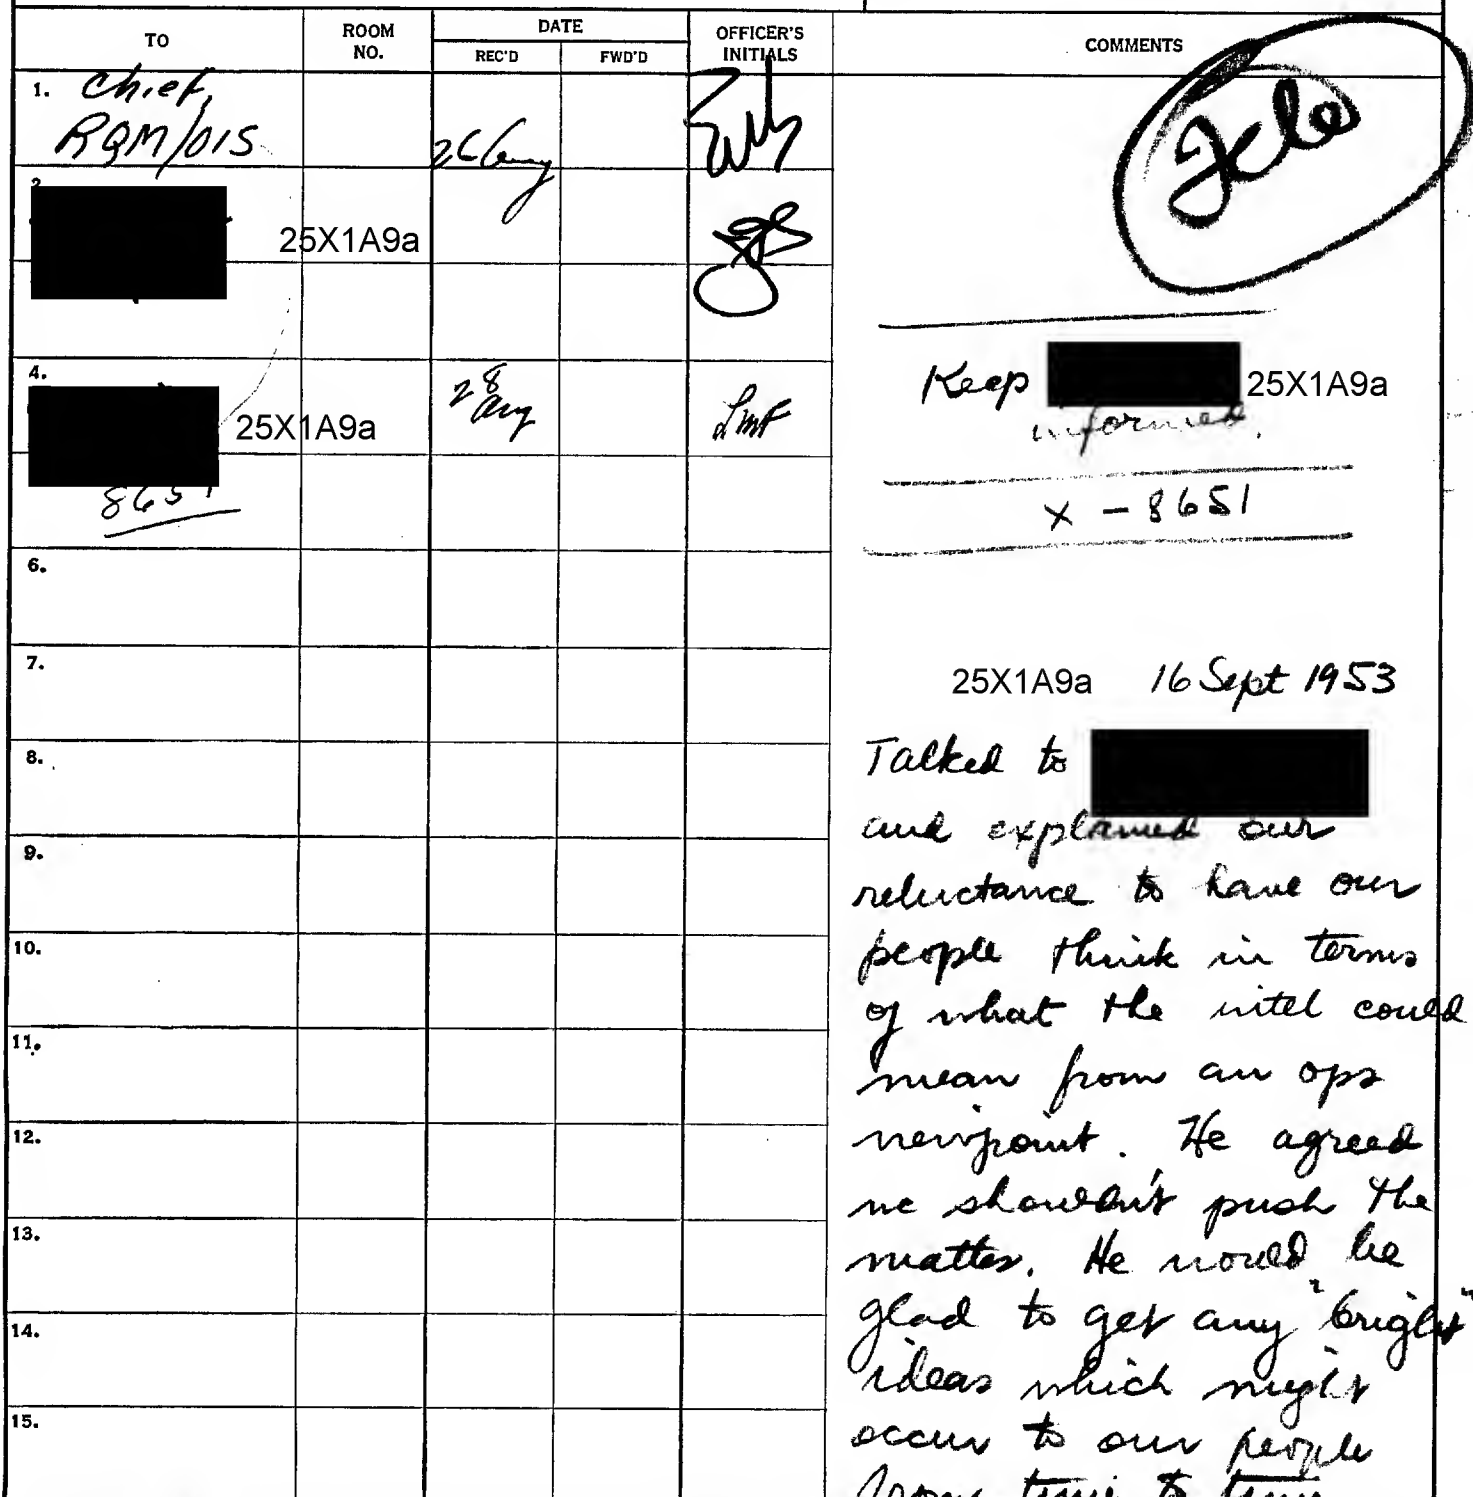 TO
ROOM NO.
DATE
REC'D
FWD'D
OFFICER'S INITIALS
COMMENTS
1. Chief,
RQM/OIS
26 Aug
File
2.
25X1A9a
4.
25X1A9a
8651
28 Aug
LMF
Keep 25X1A9a
informed.
X - 8651
6.
7.
8.
9.
10.
11.
12.
13.
14.
15.
25X1A9a 16 Sept 1953
Talked to
and explained our
reluctance to have our
people think in terms
of what the intel could
mean from an ops
viewpoint. He agreed
we shouldn't push the
matter. He would be
glad to get any "bright"
ideas which might
occur to our people
from time to time